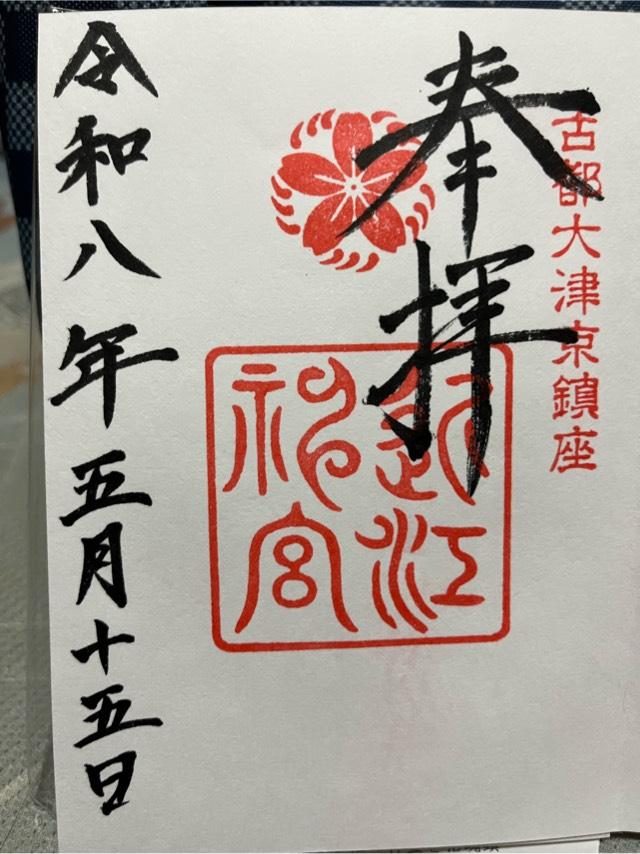 古都大津京鎮座
奉拝
近江神宮
令和八年五月十五日